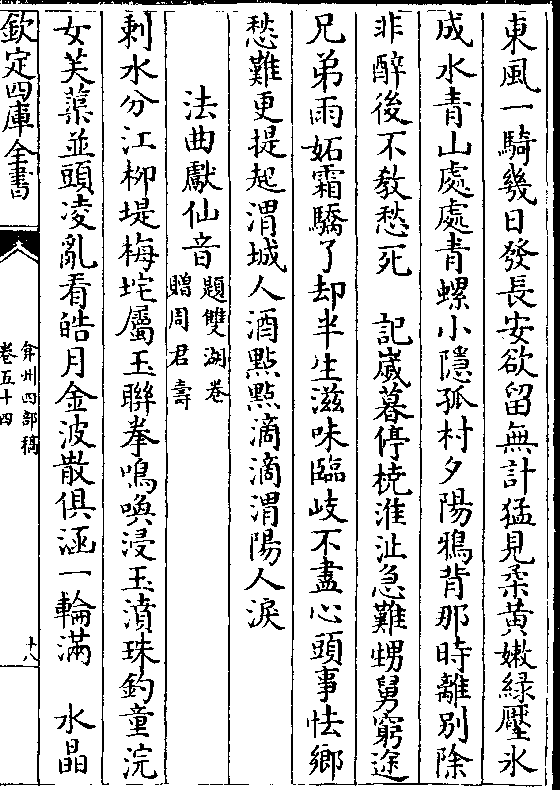 東風一騎幾日發長安欲留無計猛見柔黃嫩綠壓氷
成水青山處處青螺小隱孤村夕陽鴉背那時離別除
非醉後不敎愁死　記歲暮停橈淮沚急難甥舅窮途
兄弟雨妬霜驕了却半生滋味臨岐不盡心頭事怯鄉
愁難更提起渭城人酒點點滴滴渭陽人淚
法曲獻仙音題雙湖卷贈周君壽
剩水分江柳堤梅垞屬玉聯拳鳴喚浸玉瀆珠釣童浣
女芙蕖並頭凌亂看皓月金波散俱涵一輪滿　水晶
欽定四庫全書
弇州四部稿
卷五十四
十八